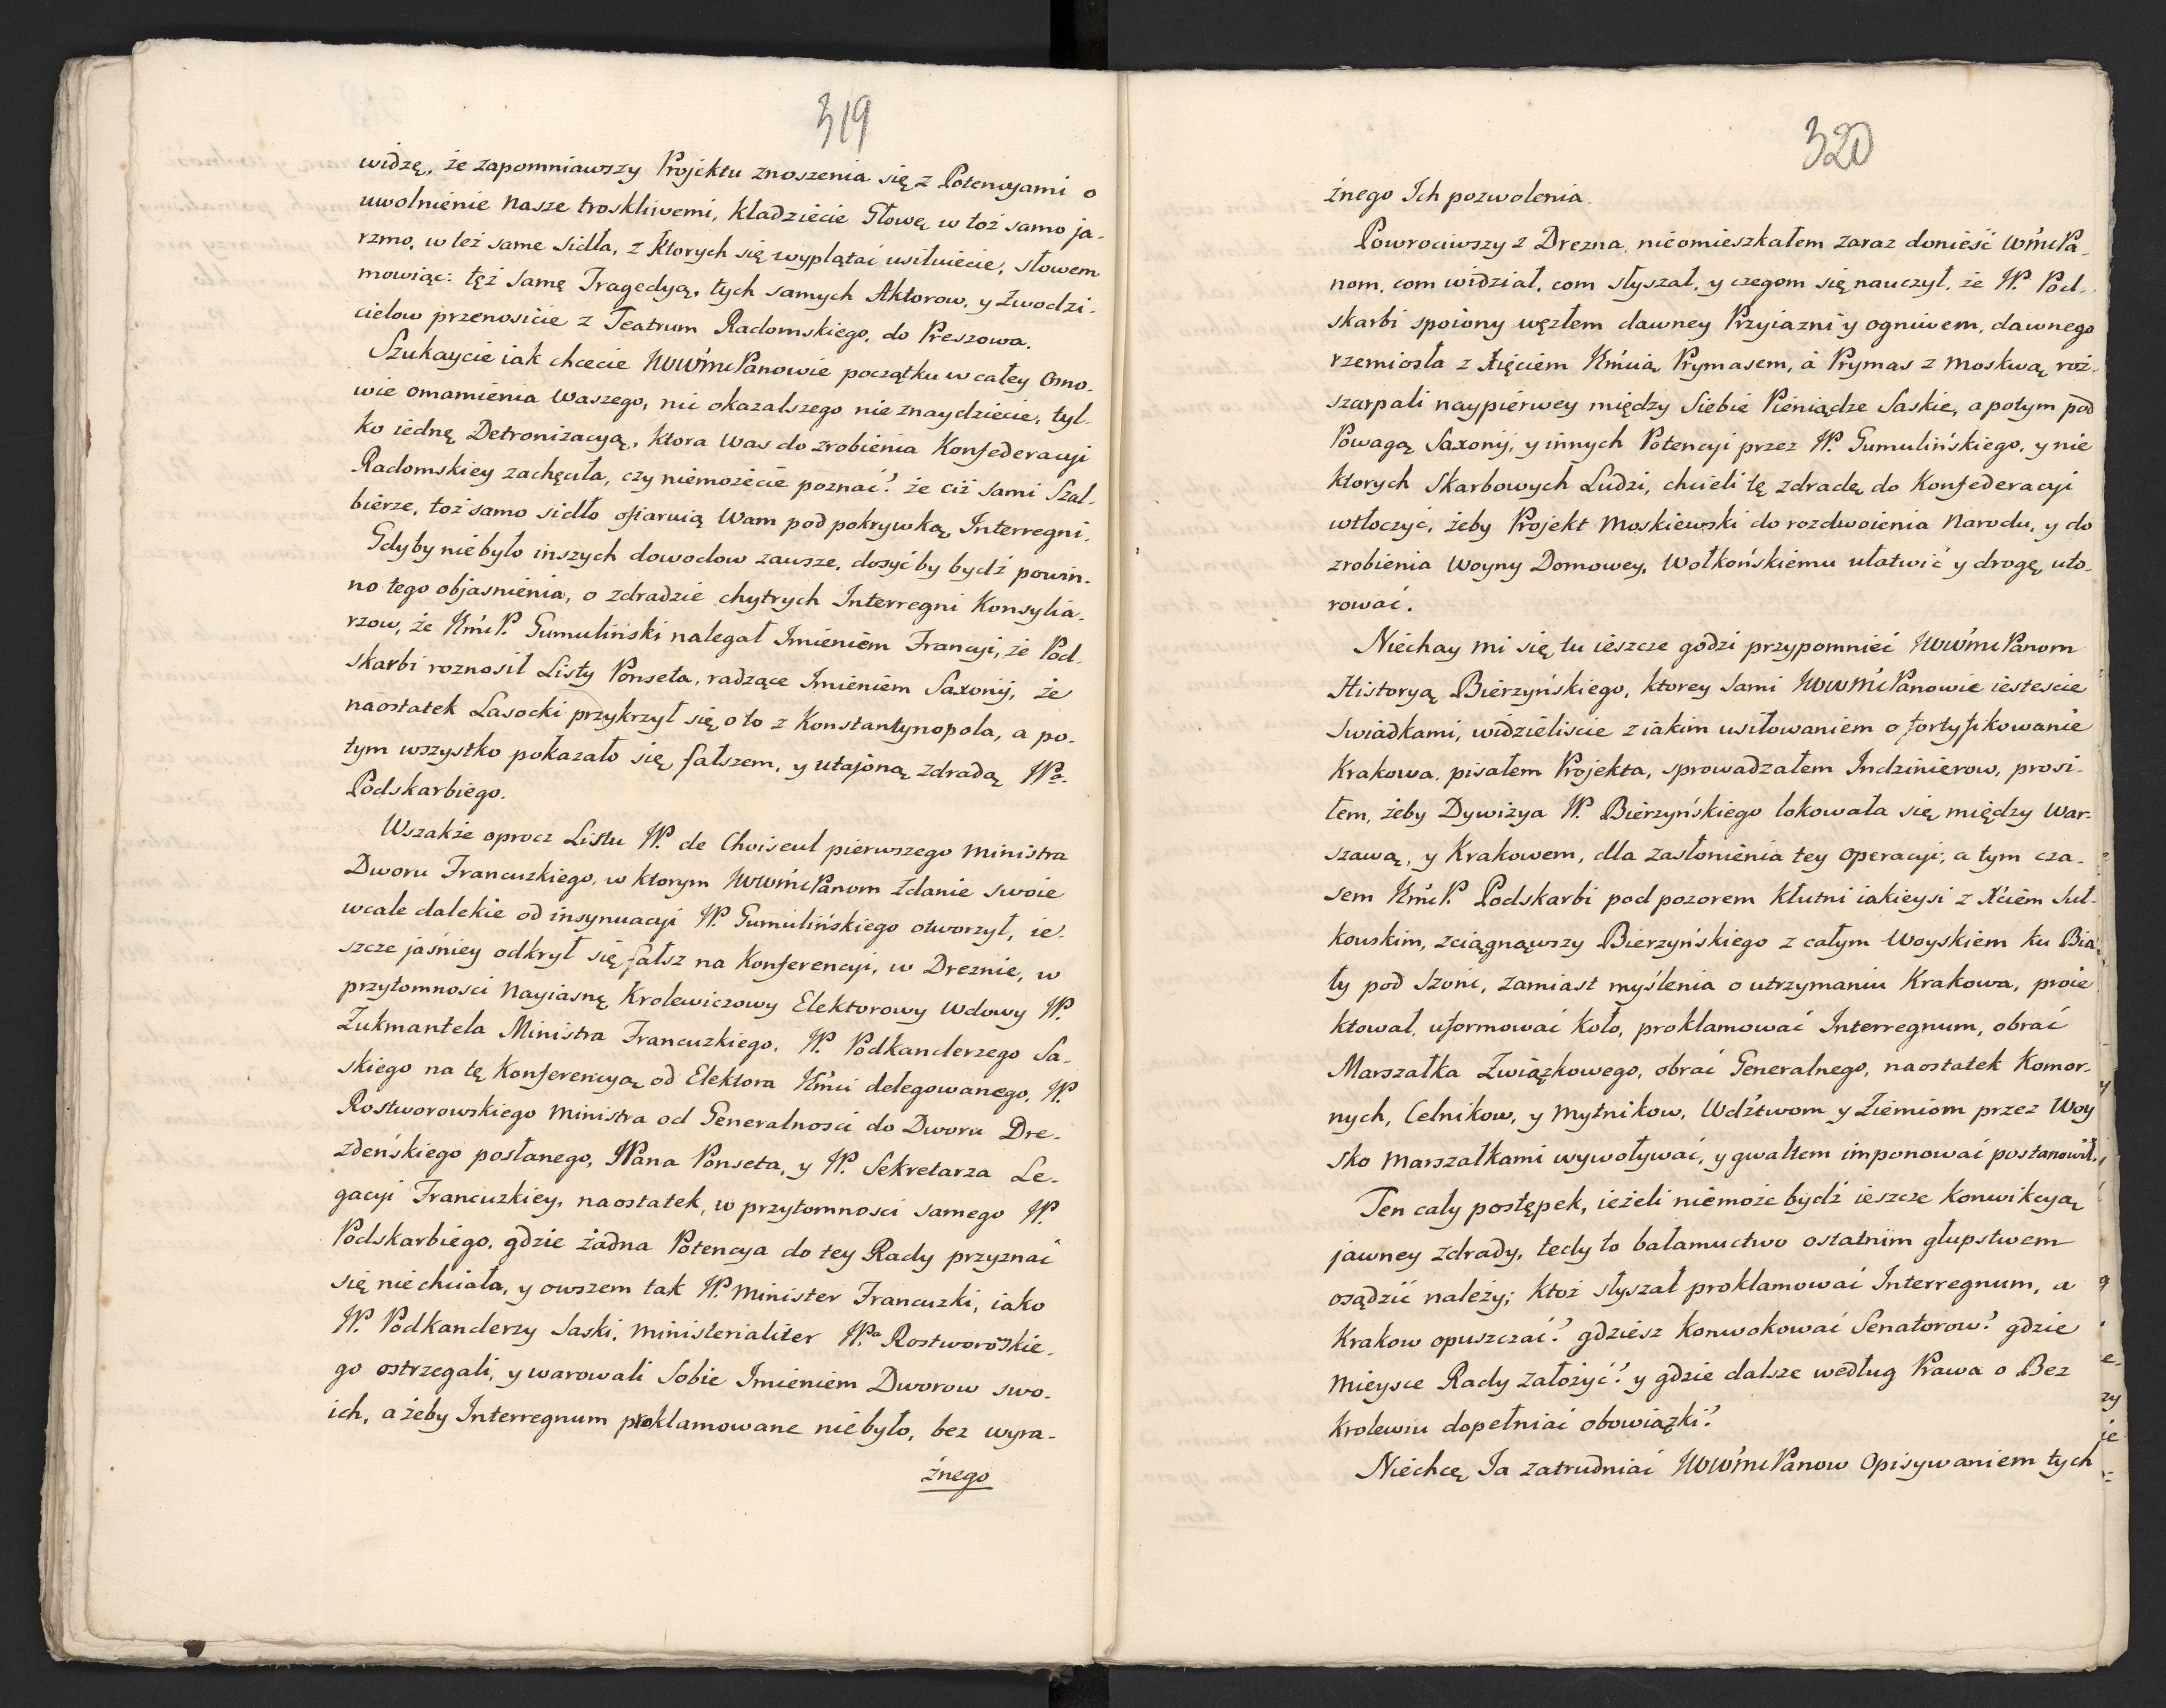 319
widzę, że zapomniawszy Projektu znoszenia się z Potencyami o
uwolnienie nasze troskliwemi, kładziecie Głowę w toż samo ja-
rzmo, w też same Sidła, z ktorych się wyplątać usiłuiecie, słowem
mowiąc: tęż samę Tragedyą, tych samych Aktorow, y Zwodzi-
cielow przenosicie z Teatrum Radomskiego, do Preszowa.
Szukaycie iak chcecie WWMć Panowie początku w całey Osno-
wie omamienia Waszego, nic okazalszego nie znaydziecie, tyl-
ko iednę Detronizacyą, ktora Was do zrobienia Konfederacyi
Radomskiey zachęcała, czy niemożecie poznać? że ciż sami Szal-
bierze, toż samo sidło ofiaruią Wam pod pokrywką Interregni.
Gdyby niebyło inszych dowodow zawsze, dosyć by bydź powin-
no tego objasnienia, o zdradzie chytrych Interregni Konsylia-
rzow, że JmćP. Gumuliński nalegał Imieniem Francyi, że Pod-
skarbi roznosił Listy Ponseta, radzące Imieniem Saxonij, że
naostatek Lasocki przykrzył się o to z Konstantynopola, a po-
tym wszystko pokazało się fałszem, y utajoną zdradą WPo
Podskarbiego.
Wszakże oprocz Listu JP. de Choiseul pierwszego Ministra
Dworu Francuzkiego, w ktorym WWMć Panom Zdanie swoie
wcale dalekie od insynuacyi JP. Gumulińskiego otworzył, ie-
szcze jaśniey odkrył się fałsz na Konferencyi, w Dreznie, w
przytomnosci Nayiasnę Krolewiczowy Elektorowy Wdowy JP.
Zukmantela Ministra Francuzkiego, JP. Podkanclerzego Sa-
skiego na tę Konferencyą od Elektora Jmci delegowanego, JP.
Rostworowskiego Ministra od Generalnosci do Dworu Dre-
zdeńskiego posłanego, JPana Ponseta, y JP. Sekretarza Le-
gacyi Francuzkiey, naostatek, w przytomnosci samego JP.
Podskarbiego, gdzie żadna Potencya do tey Rady przyznać
się niechciała, y owszem tak JP. Minister Francuzki, iako
JP. Podkanclerzy Saski, ministerialiter JPa Rostworowskie-
go ostrzegali, y warowali Sobie Imieniem Dworow swo-
ich, ażeby Interregnum proklamowane niebyło, bez wyra-
źnego
320
źnego Ich pozwolenia.
Powrociwszy z Drezna, nieomieszkałem zaraz donieść WMć Pa-
nom, com widział, com słyszał, y czegom się nauczył, że JP. Pod-
skarbi spoiony węzłem dawney Przyiazni y ogniwem, dawnego
rzemiosła z Xięciem Jmcią Prymasem, a Prymas z Moskwą roz-
szarpali naypierwey między Siebie Pieniądze Saskie, a potym pod
Powagą Saxonij, y innych Potencyi przez JP. Gumulińskiego, y nie
ktorych Skarbowych Ludzi, chcieli tę zdradę do Konfederacyi
wtłoczyć, żeby Projekt Moskiewski do rozdwoienia Narodu, y do
zrobienia Woyny Domowey, Wołkońskiemu ułatwić y drogę uto-
rować.
Niechay mi się tu ieszcze godzi przypomnieć WWMć Panom
Historyą Bierzyńskiego, ktorey sami WWMć Panowie iestescie
Swiadkami, widzieliscie z iakim usiłowaniem o fortyfikowanie
Krakowa, pisałem Projekta, sprowadzałem Indzinierow, prosi-
łem, żeby Dywizya JP. Bierzyńskiego lokowała się między War-
szawą, y Krakowem, dla zasłonienia tey operacyi; a tym cza-
sem JmćP. Podskarbi pod pozorem kłutni iakieysi z X'ciem Suł-
kowskim, zciągnąwszy Bierzyńskiego z całym Woyskiem ku Bia-
ły pod Szonc, zamiast myślenia o utrzymaniu Krakowa, proie
ktował, uformować koło, proklamować Interregnum, obrać
Marszałka Związkowego, obrać Generalnego, naostatek Komor-
nych, Celnikow, y Mytnikow, Wdztwom y Ziemiom przez Woy
sko Marszałkami wywoływać, y gwałtem imponować postanowił.
Ten cały postępek, ieżeli niemoże bydź ieszcze konwikcyą
jawney zdrady, tedy to bałamuctwo ostatnim głupstwem
osądzić należy; ktoż słyszał proklamować Interregnum, a
Krakow opuszczać? gdziesz konwokować Senatorow? gdzie
Mieysce Rady założyć? y gdzie dalsze według Prawa o Bez
krolewiu dopełniać obowiązki?
Niechcę Ja zatrudniać WWMć Panow Opisywaniem tych